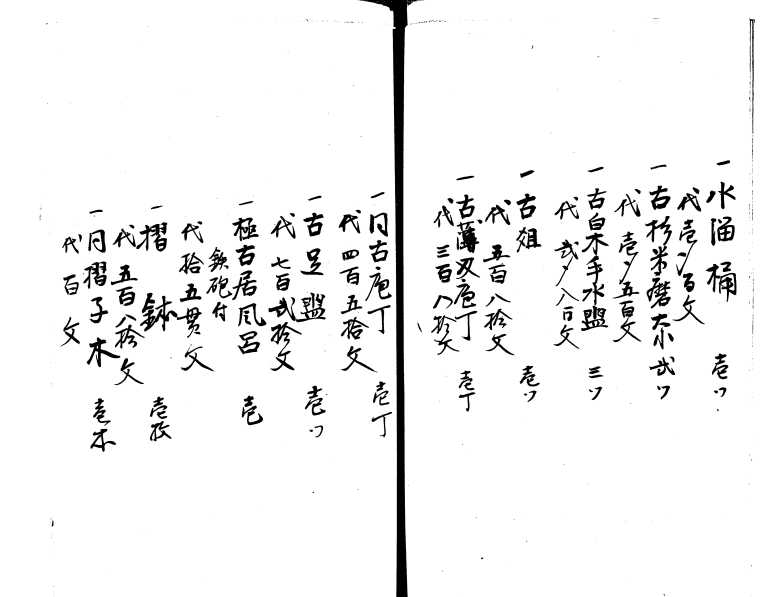 一水溜桶 壱ツ
代壱〆百文
一古杉米磨大小弐ツ
代壱〆五百文
一古白木手水盥 三ツ
代弐〆八百文
一古俎 壱ツ
代五百八拾文
一古薄刃庖丁 壱丁
代三百八拾文
一同古庖丁 壱丁
代四百五拾文
一古足盥 壱ツ
代七百弐拾文
一極古居風呂 壱
鉄砲付
代拾五貫文
一摺鉢 壱枚
代五百八拾文
一同摺子木 壱本
代百文